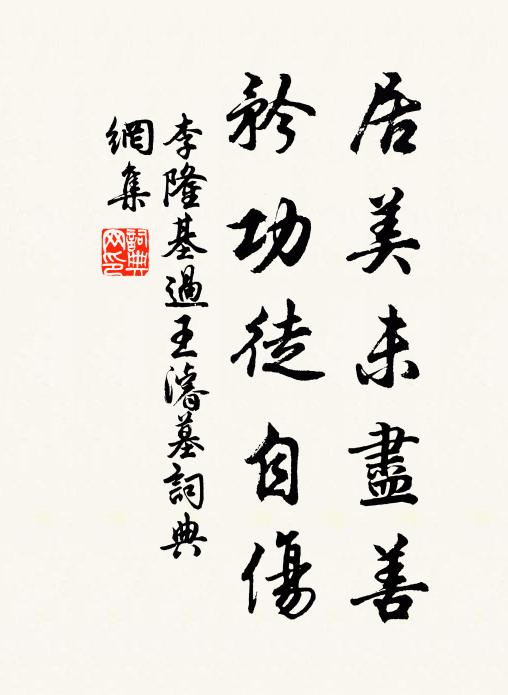 居美未盡善
矜功徒自傷
李隆基過王濬墓詞典
網集
詞典網印